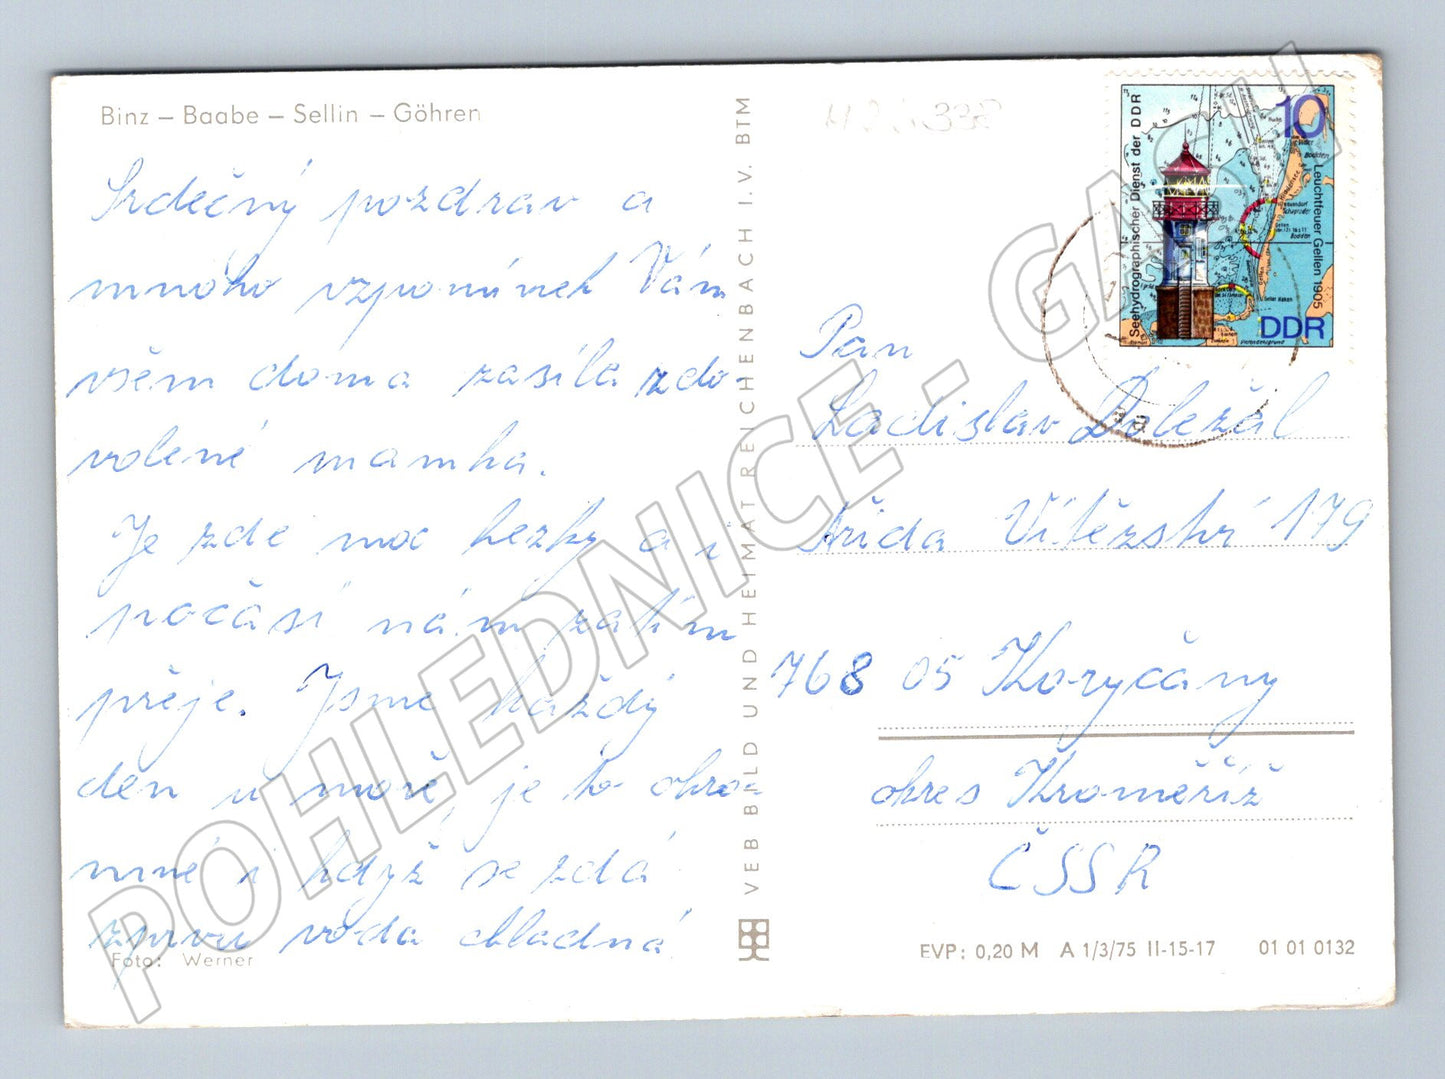 Binz – Baabe – Sellin – Göhren
Srdečný pozdrav a
mnoho vzpomínek Vám
všem doma zasíla zdo-
volené mamka.
Je zde moc hezky a i
počásí nám zatím
přeje. Jsme každý
den u moře, je to ohro-
mné i když se zdá
zprvu voda chladná
Foto: Werner
VEB BILD UND HEIMAT REICHENBACH I.V. BTM
Seehydrographischer Dienst der DDR
10
Leuchtfeuer Gellen 1905
DDR
Pan
Ladislav Doležál
třída Vítězství 179
768 05 Koryčány
okres Kroměříž
ČSSR
EVP: 0,20 M A 1/3/75 II-15-17 01 01 0132
POHLEDNICE - GASU